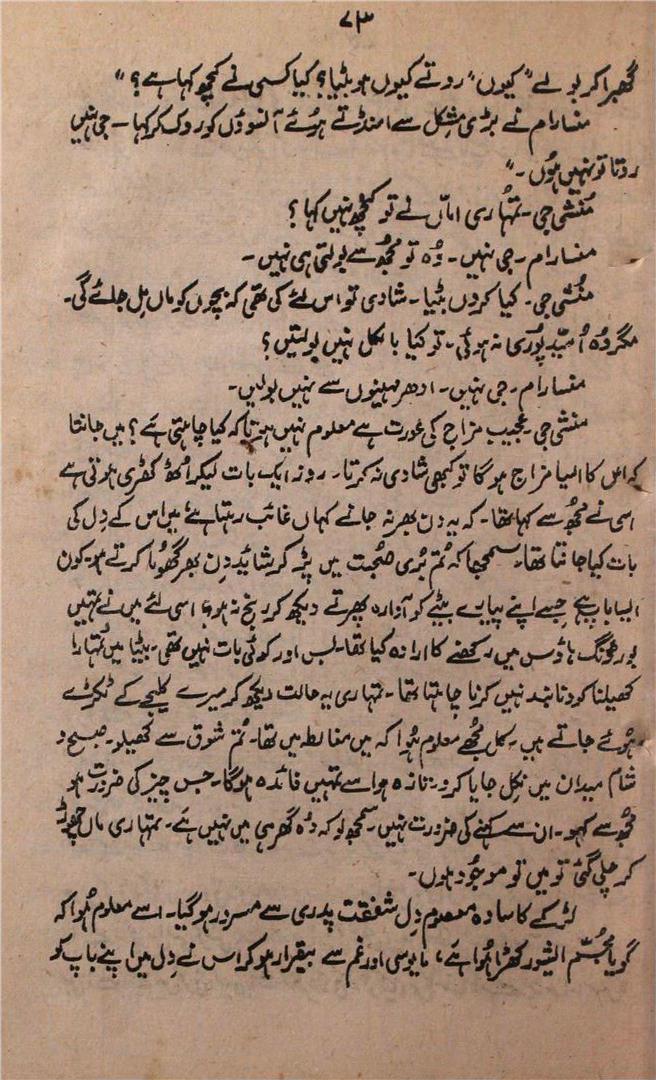 ۷۳
گھبرا کر بولے "کیوں" روتے کیوں ہو بیٹیا؟ کیا کسی نے کچھ کہا ہے؟"
منسارام نے بڑی مشکل سے امنڈتے ہوئے آنسوؤں کو روک کر کہا – جی نہیں
روتا تو نہیں ہوں۔"
منشی جی۔ تمہاری اماں نے تو کچھ نہیں کہا؟
منسارام – جی نہیں۔ وہ تو مجھ سے بولتی ہی نہیں۔
منشی جی۔ کیا کروں بٹیا۔ شادی تو اس لئے کی تھی کہ بچوں کو ماں مل جائے گی۔
مگر وہ اُمید پوری نہ ہوئی۔ تو کیا بالکل نہیں بولتیں؟
منسارام۔ جی نہیں۔ ادھر مہینوں سے نہیں بولیں۔
منشی جی۔ عجیب مزاج کی عورت ہے معلوم نہیں ہوتا کہ کیا چاہتی ہے؟ میں جانتا
کہ اس کا ایسا مزاج ہو گا تو کبھی شادی نہ کرتا۔ روز ایک بات لیکر اُٹھ کھڑی ہوتی ہے
اسی نے مجھ سے کہا تھا۔ کہ یہ دن بھر نہ جانے کہاں غائب رہتا ہے میں اس کے دل کی
بات کیا جانتا تھا۔ سمجھا کہ تم بُری صحبت میں پڑ کر شاید دن بھر گھوما کرتے ہو۔ کون
ایسا باپ ہے جسے اپنے پیارے بیٹے کو آوارہ پھرتے دیکھ کر رنج نہ ہو؟ اسی لئے میں نے تمہیں
بورڈنگ ہاؤس میں رکھنے کا ارادہ کیا تھا۔ بس اور کوئی بات نہیں تھی۔ بیٹا میں تمہارا
کھیلنا کودنا بند نہیں کرنا چاہتا تھا۔ تمہاری یہ حالت دیکھ کر میرے کلیجے کے ٹکڑے
ہوئے جاتے ہیں۔ کل مجھے معلوم ہوا کہ میں مغالطہ میں تھا۔ تم شوق سے کھیلو۔ صبح و
شام میدان میں نکل جایا کرو۔ تازہ ہوا سے تمہیں فائدہ ہوگا۔ جس چیز کی ضرورت ہو
مجھ سے کہو۔ ان سے کہنے کی ضرورت نہیں۔ سمجھ لو کہ وہ گھر ہی میں نہیں ہے۔ تمہاری ماں چھوڑ
کر چلی گئی تو میں تو موجود ہوں۔
لڑکے کا سادہ معصوم دل شفقت پدری سے مسرور ہو گیا۔ اسے معلوم ہوا کہ
گویا مجسم ایشور کھڑا ہوا ہے، مایوسی اور غم سے بیقرار ہو کر اس نے دل میں اپنے باپ کو